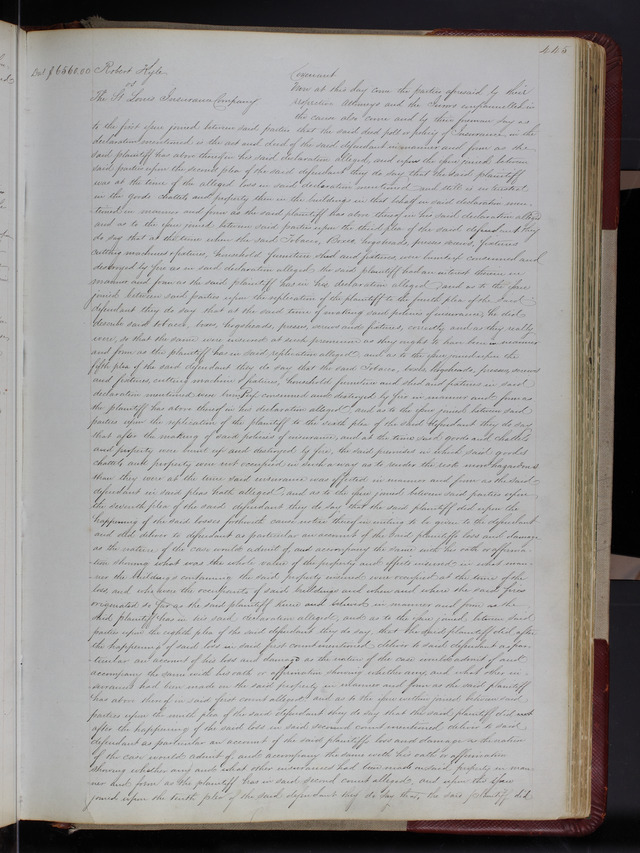 445
Dol $6560.00 Robert Hyle
vs
The St Louis Insurance Company
Covenant
Now at this day come the parties aforesaid by their
respective Attorneys and the Jurors empannelled in
the cause also come and by their foreman say as
to the first issue joined between said parties that the said deed poll or policy of Insurance, in the
declaration mentioned is the act and deed of the said defendant in manner and form as the
said plaintiff has above thereof in his said declaration alleged, and upon the issue joined between
said parties upon the second plea of the said defendant they do say that the said plaintiff
was at the time of the alleged loss in said declaration mentioned and still is interested
in the goods chattels and property then in the buildings in that behalf in said declaration men
tioned in manner and form as the said plaintiff has above thereof in his said declaration alleged
and as to the issue joined between said parties upon the third plea of the said defendant they
do say that at the time when the said Tobacco, Boxes hogsheads, presses screws, fixtures
cutting machines & fixtures, household furniture shed and fixtures, were burnt up consumed and
destroyed by fire as in said declaration alleged the said plaintiff had an interest therein in
manner and form as the said plaintiff has in his declaration alleged and as to the issue
joined between said parties upon the replication of the plaintiff to the fourth plea of the said
defendant they do say that at the time of making said policies of insurance, he did
describe said tobacco, boxes, hogsheads, presses, screws and fixtures, correctly and as they really
were, so that the same were insured at such premium as they ought to have been in manner
and form as the plaintiff has in said replication alleged and as to the issue joined upon the
fifth plea of the said defendant they do say that the said Tobacco, boxes, hogsheads, presses, screws
and fixtures, cutting machine & fixtures, household furniture and shed and fixtures in said
declaration mentioned were burnt up consumed and destroyed by fire in manner and form as
the plaintiff has above thereof in his declaration alleged and as to the issue joined between said
parties upon the replication of the plaintiff to the sixth plea of the said defendant they do say
that after the making of said policies of insurance, and at the time said goods and chattels
and property were burnt up and destroyed by fire, the said premises in which said goods
chattels and property were not occupied in such a way as to render the risk more hazardous
than they were at the time said insurance was effected in manner and form as the said
defendant in said pleas hath alleged and as to the issue joined between said parties upon
the seventh plea of the said defendant they do say that the said plaintiff did upon the
happening of the said losses forthwith cause notice thereof in writing to be given to the defendant
and did deliver to defendant as particular an account of the said plaintiffs loss and damage
as the nature of the case would admit of, and accompany the same with his oath or affirma
tion showing what was the whole value of the property and effects insured in what man
ner the buildings containing the said property insured were occupied at the time of the
loss, and who were the occupants of said buildings and when and where the said fires
originated so far as the said plaintiff knew and believed in manner and form as the
said plaintiff has in his said declaration alleged, and as to the issue joined between said
parties upon the eighth plea of the said defendant they do say that the said plaintiff did after
the happening of said loss in said first count mentioned deliver to said defendant as par
ticular an account of his loss and damage as the nature of the case would admit of and
accompany the same with his oath or affirmation showing whether any and what other in
surances had been made on the said property in manner and form as the said plaintiff
has above thereof in said first count alleged and as to the issue joined between said
parties upon the ninth plea of the said defendant they do say that the said plaintiff did
after the happening of the said loss in said second count mentioned deliver to said
defendant as particular an account of the said plaintiffs loss and damage as the nature
of the case would admit of and accompany the same with his oath or affirmation
showing whether any and what other insurances had been made on said property in man
ner and form as the plaintiff has in said second count alleged, and upon the issue
joined upon the tenth plea of the said defendant they do say that the said plaintiff did